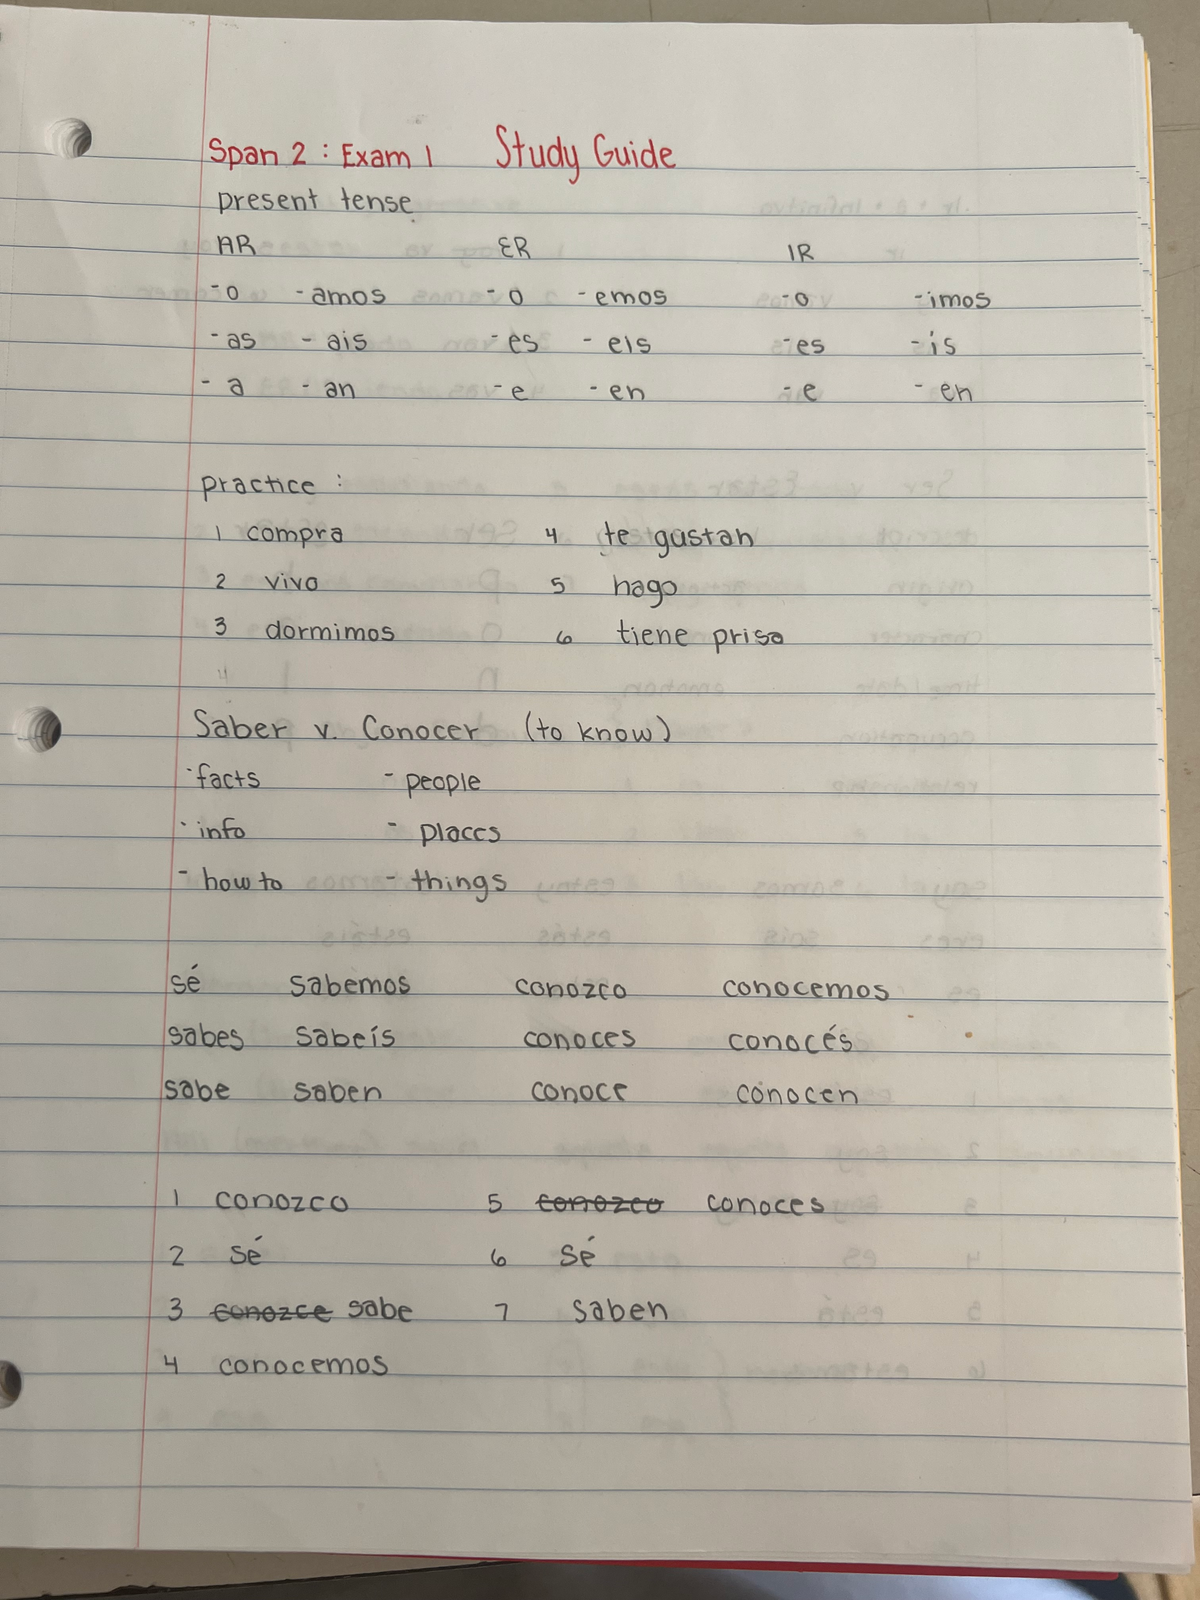 Span 2 : Exam 1 Study Guide
present tense
AR ER IR
-o -amos -o -emos -o -imos
-as -ais -es -eis -es -is
-a -an -e -en -e -en
practice :
1 compra 4 te gustan
2 vivo 5 hago
3 dormimos 6 tiene prisa
4
Saber v. Conocer (to know)
-facts -people
-info -places
-how to -things
sé sabemos conozco conocemos
sabes sabeís conoces conocés
sabe saben conoce conocen
1 conozco 5 conozco conoces
2 sé 6 sé
3 conozce sabe 7 saben
4 conocemos